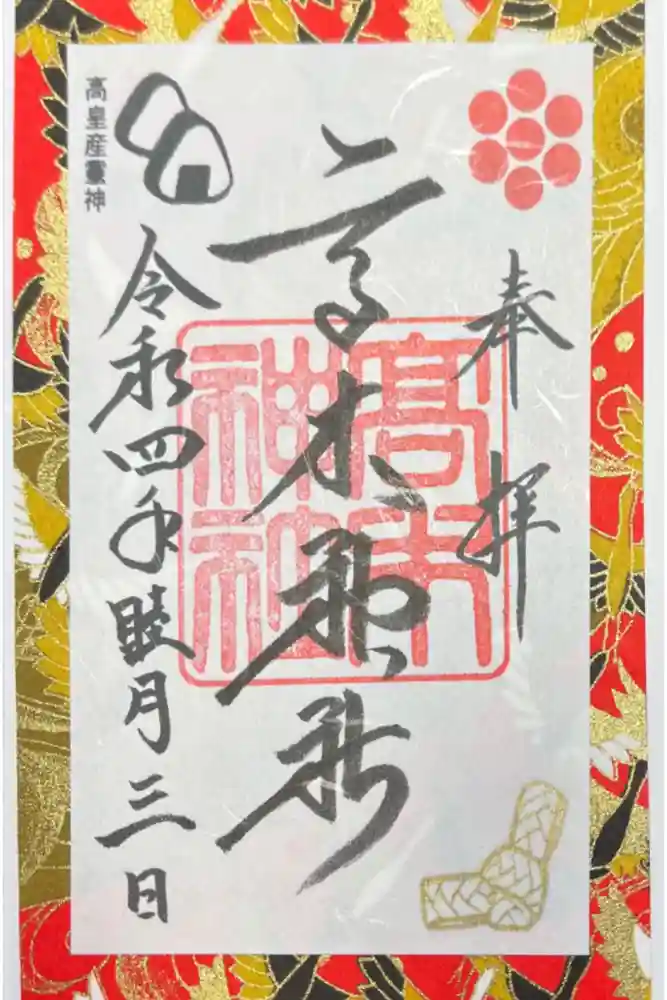 奉拝
高木神社
高木
神社
令和四年睦月三日
高皇産靈神